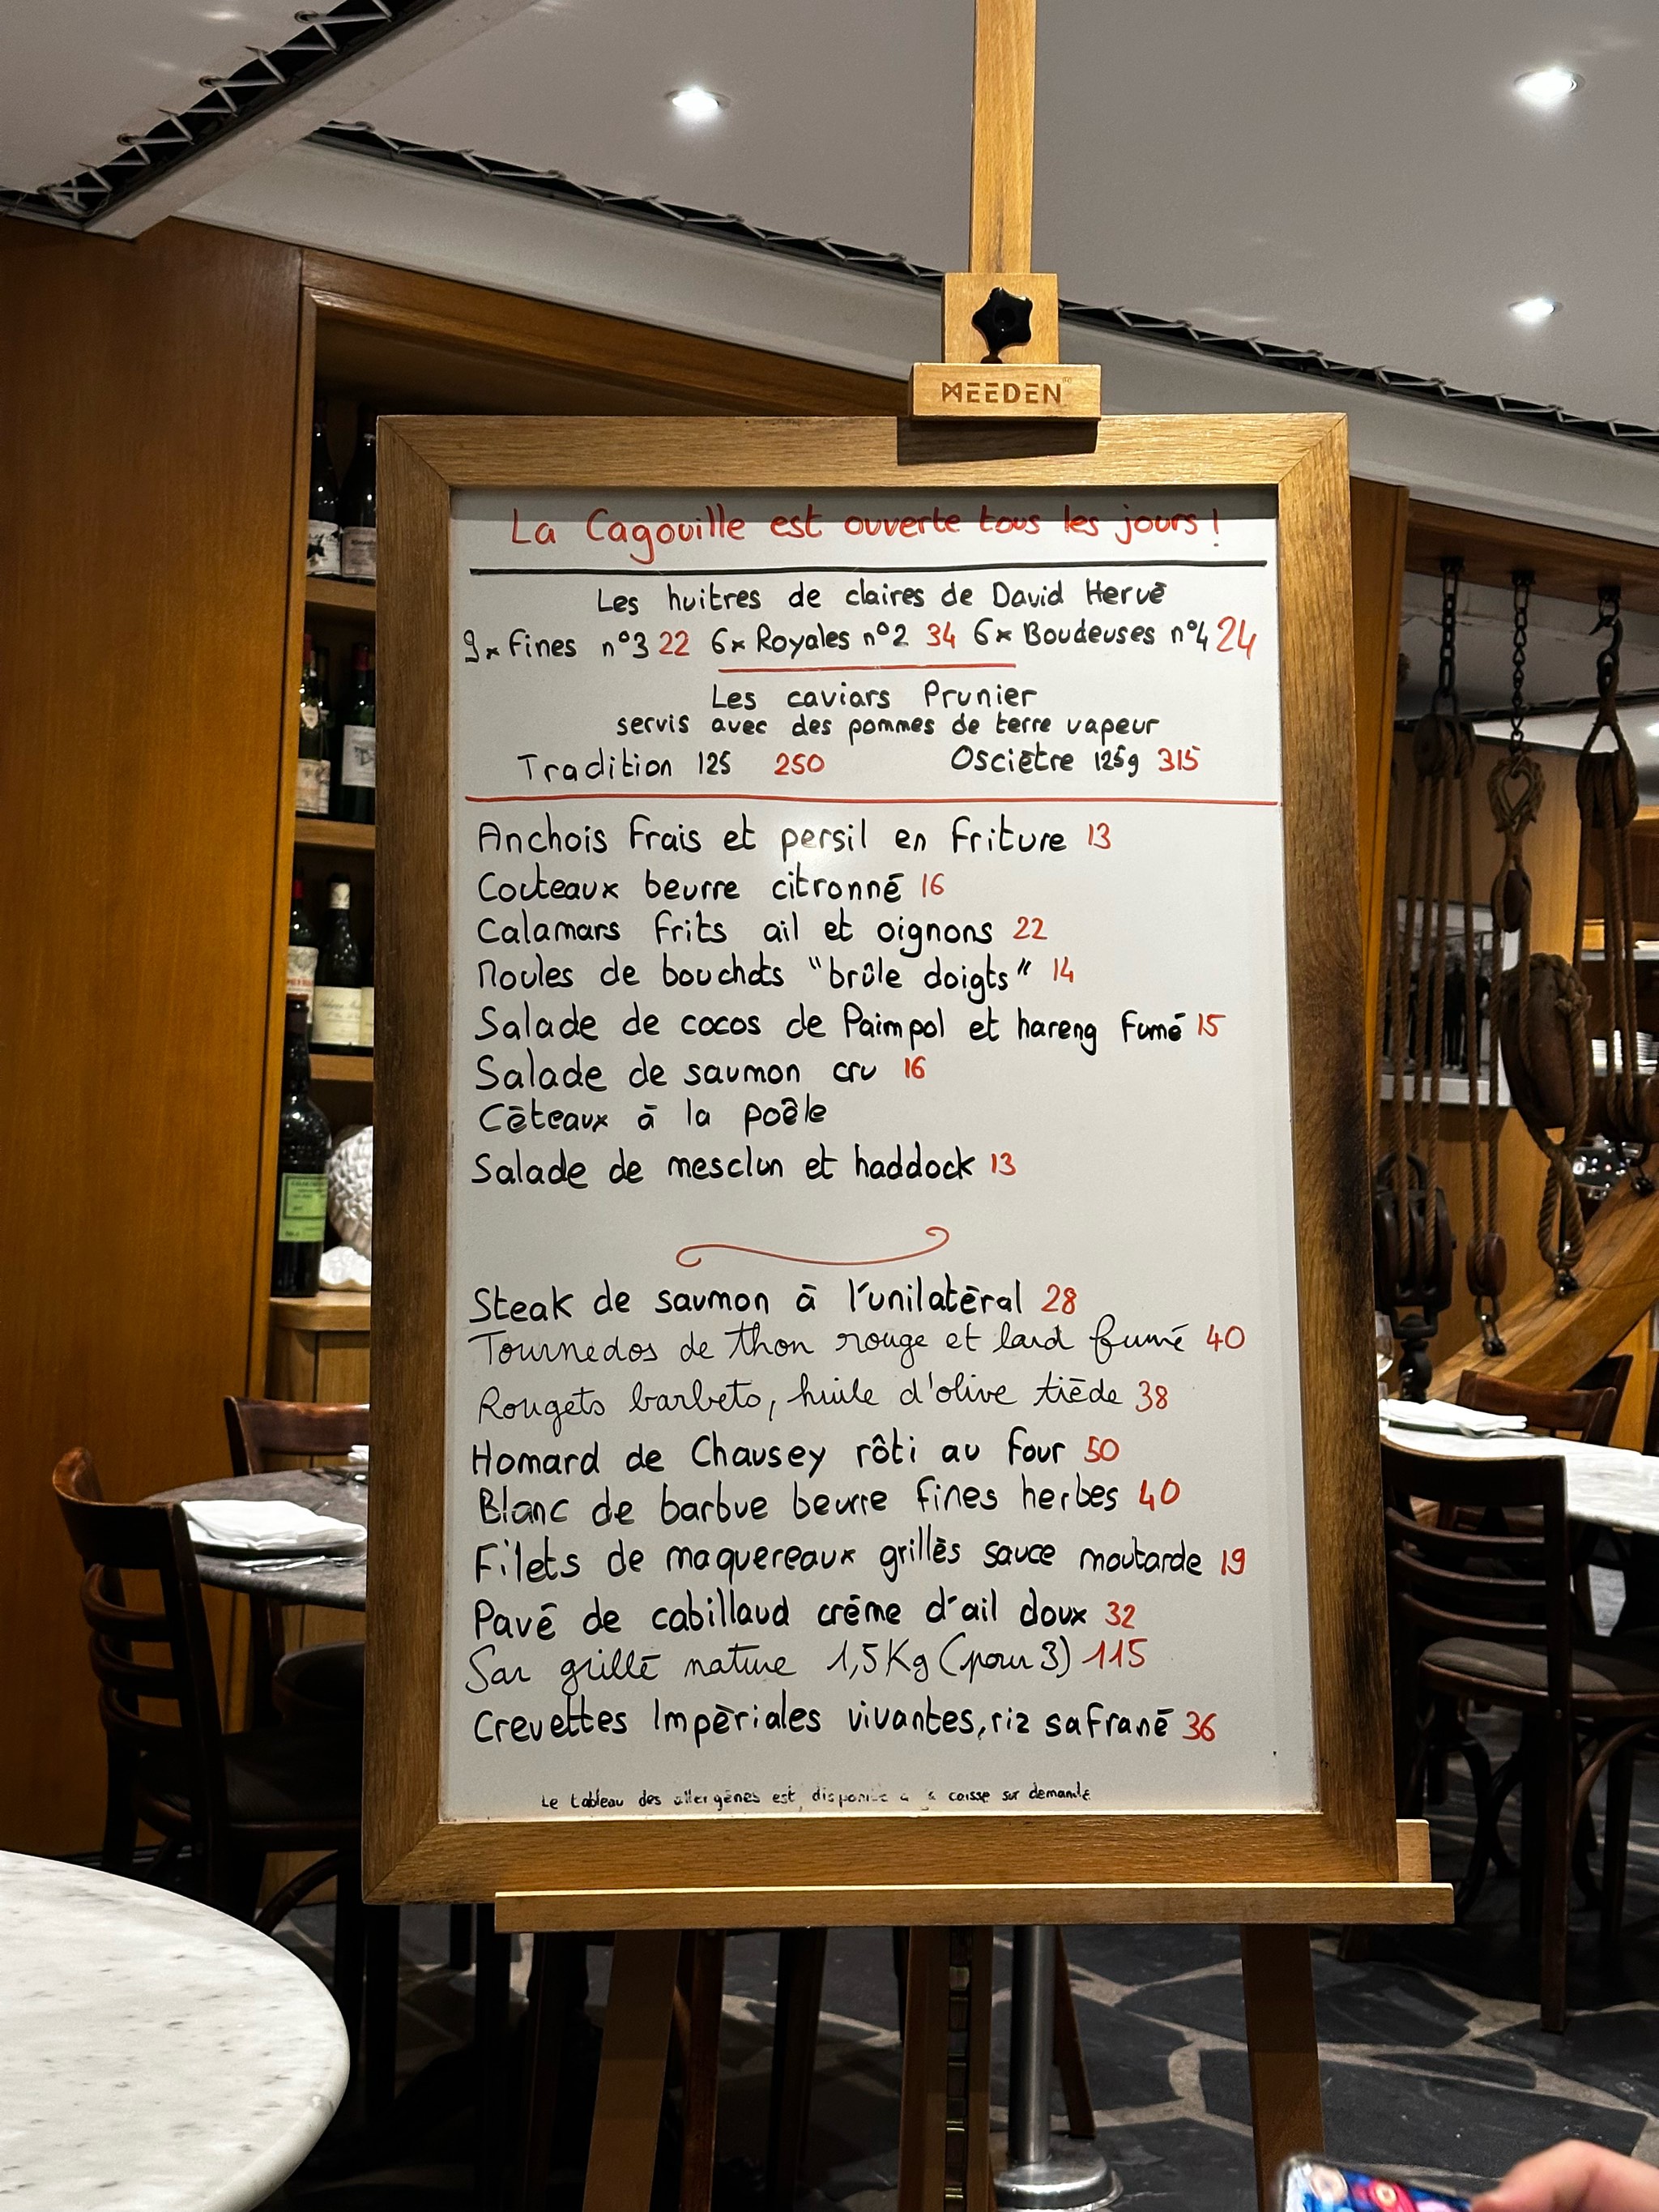 MEEDEN
La Cagouille est ouverte tous les jours !
Les huitres de claires de David Hervé
9x fines n°3 22 6x Royales n°2 34 6x Boudeuses n°4 24
Les caviars Prunier
servis avec des pommes de terre vapeur
Tradition 125 250 Osciètre 125g 315
Anchois frais et persil en friture 13
Couteaux beurre citronné 16
Calamars frits ail et oignons 22
Moules de bouchots "brûle doigts" 14
Salade de cocos de Paimpol et hareng fumé 15
Salade de saumon cru 16
Céteaux à la poêle
Salade de mesclun et haddock 13
Steak de saumon à l'unilatéral 28
Tournedos de thon rouge et lard fumé 40
Rougets barbets, huile d'olive tiède 38
Homard de Chausey rôti au four 50
Blanc de barbue beurre fines herbes 40
Filets de maquereaux grillés sauce moutarde 19
Pavé de cabillaud crème d'ail doux 32
Sar grillé nature 1,5Kg (pour 3) 115
Crevettes Impériales vivantes, riz safrané 36
Le tableau des allergènes est caisse sur demande